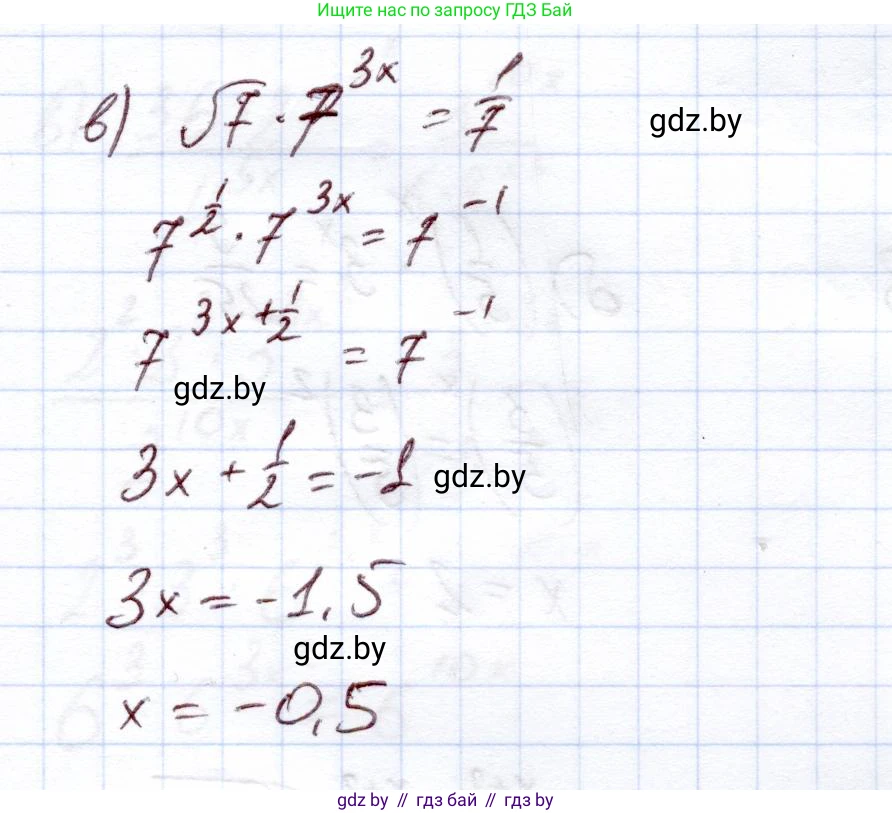 Ищите нас по запросу ГДЗ Бай
в) √7 · 7^(3x) = 1/7
gdz.by
7^(1/2) · 7^(3x) = 7^(-1)
7^(3x + 1/2) = 7^(-1)
gdz.by
3x + 1/2 = -1
gdz.by
3x = -1,5
gdz.by
x = -0,5
gdz.by // гдз бай // гдз by